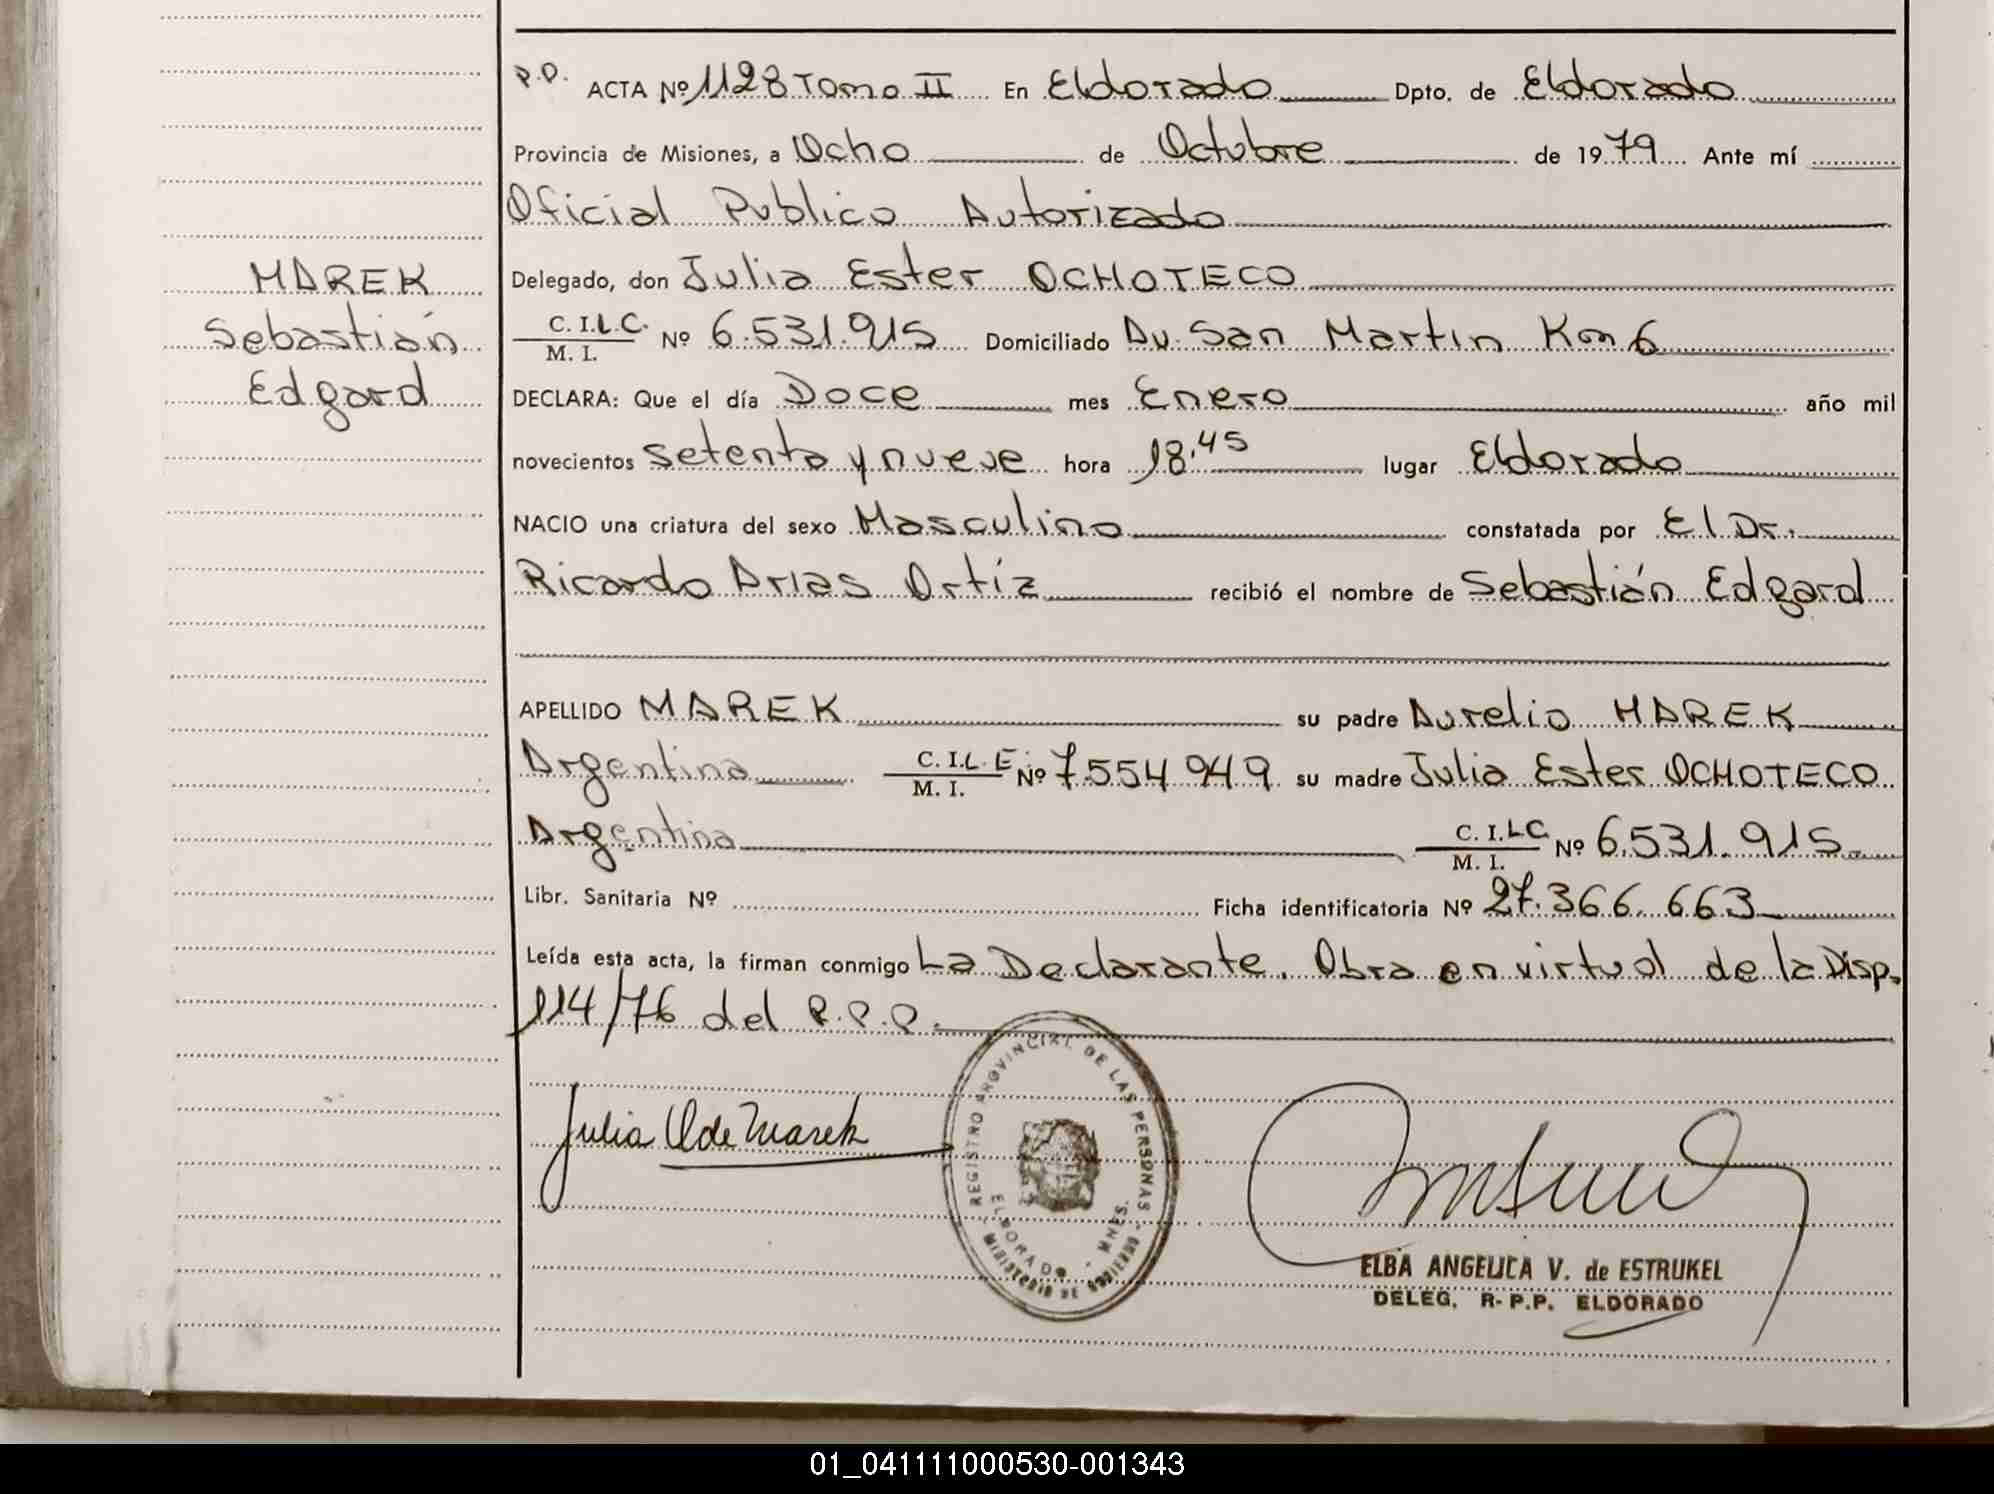 P.P. ACTA Nº 1128 Tomo II En Eldorado Dpto. de Eldorado
Provincia de Misiones, a Ocho de Octubre de 1979 Ante mí
Oficial Publico Autorizado
Delegado, don Julia Ester OCHOTECO
MAREK
Sebastián
Edgard
C. I.L.C. M. I. Nº 6.531.915 Domiciliado Av. San Martin Km 6
DECLARA: Que el día Doce mes Enero año mil
novecientos setenta y nueve hora 18.45 lugar Eldorado
NACIO una criatura del sexo Masculino constatada por El Dr.
Ricardo Arias Ortíz recibió el nombre de Sebastián Edgard
APELLIDO MAREK su padre Aurelio MAREK
Argentina C. I.L.E. M. I. Nº 7.554.949 su madre Julia Ester OCHOTECO
Argentina C. I.LC. M. I. Nº 6.531.915
Libr. Sanitaria Nº Ficha identificatoria Nº 27.366.663
Leída esta acta, la firman conmigo La Declarante. Obra en virtud de la Disp.
114/76 del R.P.P.
Julia O de Marek
REGISTRO PROVINCIAL DE LAS PERSONAS
ELDORADO - MNES.
MINISTERIO DE GOBIERNO
ELBA ANGELICA V. de ESTRUKEL
DELEG. R-P.P. ELDORADO
01_041111000530-001343